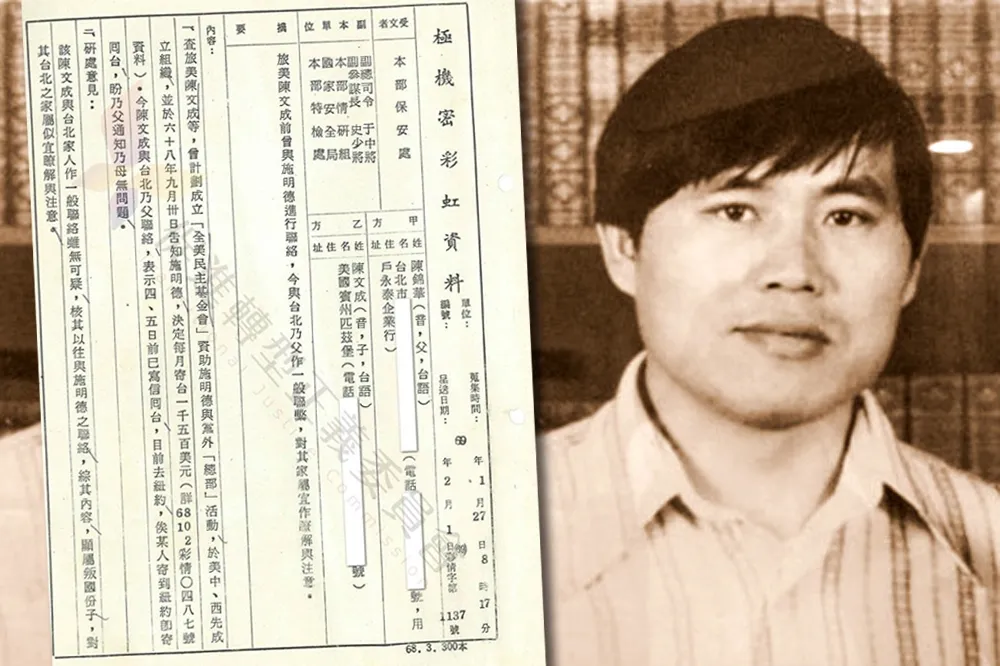 極機密彩虹資料
單位：
編號：
蒐集時間：69年1月27日8時17分
呈送日期：69年2月1日彩情字第1137號
受文者
本部保安處
副本單位
副總司令 于中將
副參謀長 史少將
本部情研組
國家安全局
本部特檢處
甲方
姓名
住址
陳錦華（音，父，台語）
台北市
號，用
戶永泰企業行）
（電話
乙方
姓名
住址
陳文成（音，子，台語）
美國賓州匹茲堡（電話
號）
摘要
旅美陳文成前曾與施明德進行聯絡，今與台北乃父作一般聯繫，對其家屬宜作瞭解與注意。
內容：
一、查旅美陳文成等，曾計劃成立「全美民主基金會」資助施明德與黨外「總部」活動，於美中、西先成
立組織，並於六十八年九月卅日告知施明德，決定每月寄台一千五百美元（詳6810 2彩情〇四八七號
資料）。今陳文成與台北乃父聯絡，表示四、五日前已寫信囘台，目前去紐約，俟某人寄到紐約即寄
囘台，盼乃父通知乃母無問題。
二、研處意見：
該陳文成與台北家人作一般聯絡雖無可疑，核其以往與施明德之聯絡，綜其內容，顯屬叛國份子，對
其台北之家屬似宜瞭解與注意。
68.3.300本
促進轉型正義委員會
Transitional Justice Commission